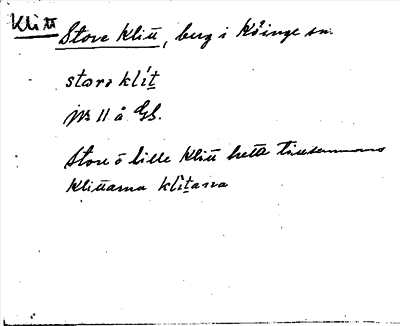 Klitt
Store Klitt, berg i Köinge sn.
storə klit
JPS II å Gs.
Store o lille Klitt hette tillsammans
Klittarna klitana